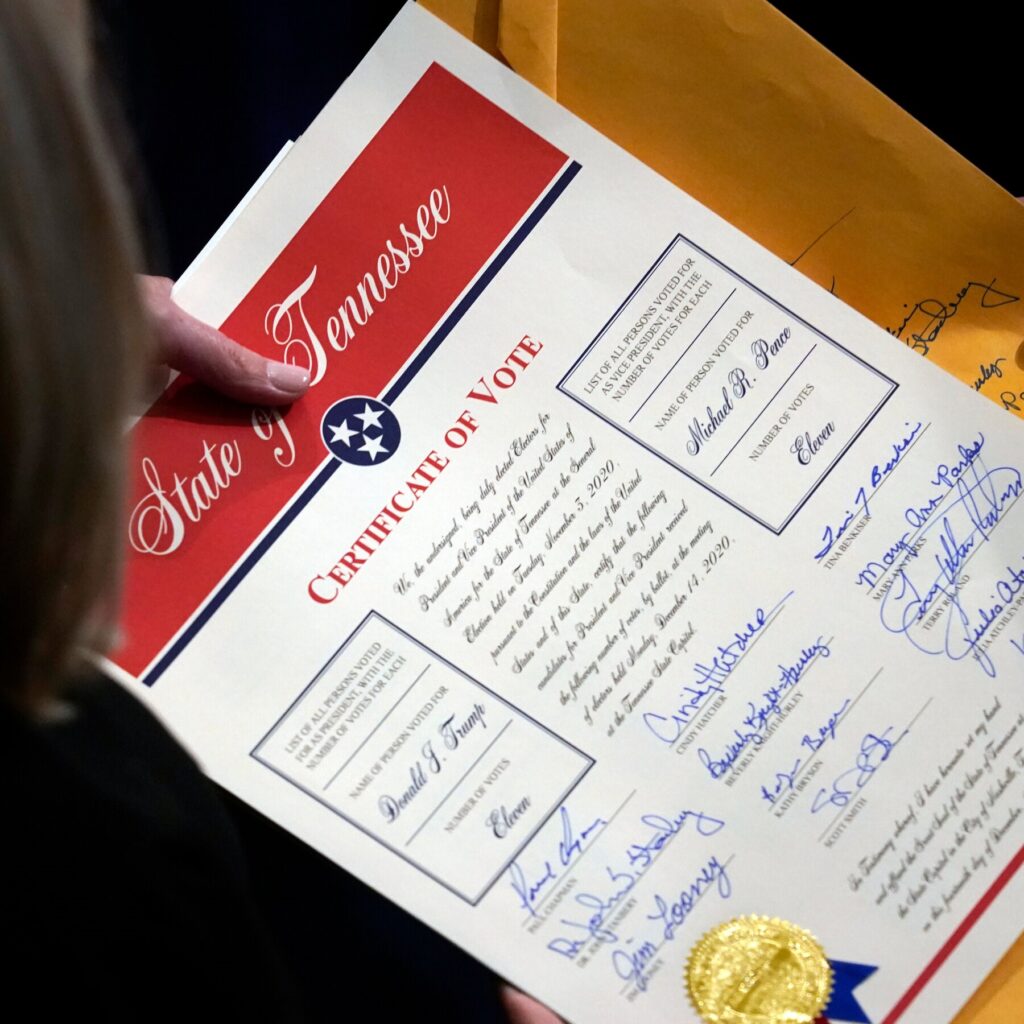 State of Tennessee
CERTIFICATE OF VOTE
We, the undersigned, being duly elected Electors for
President and Vice President of the United States of
America for the State of Tennessee at the General
Election held on Tuesday, November 3, 2020,
pursuant to the Constitution and the laws of the United
States and of this State, certify that the following
candidates for President and Vice President received
the following number of votes, by ballot, at the meeting
of electors held Monday, December 14, 2020,
at the Tennessee State Capitol.
LIST OF ALL PERSONS VOTED
FOR AS PRESIDENT, WITH THE
NUMBER OF VOTES FOR EACH
NAME OF PERSON VOTED FOR
Donald J. Trump
NUMBER OF VOTES
Eleven
LIST OF ALL PERSONS VOTED FOR
AS VICE PRESIDENT, WITH THE
NUMBER OF VOTES FOR EACH
NAME OF PERSON VOTED FOR
Michael R. Pence
NUMBER OF VOTES
Eleven
PAUL CHAPMAN
Dr John W. Stanbery
DR. JOHN STANBERY
Jim Looney
Cindy Hatcher
CINDY HATCHER
Beverly Knight-Hurley
BEVERLY KNIGHT-HURLEY
KATHY BRYSON
SCOTT SMITH
Tina Benkiser
TINA BENKISER
Mary Ann Parks
MARY ANN PARKS
TERRY ROLAND
JULIA ATCHLEY
In Testimony whereof, I have hereunto set my hand
and affixed the Great Seal of the State of Tennessee at
the State Capitol in the City of Nashville,
on this fourteenth day of December